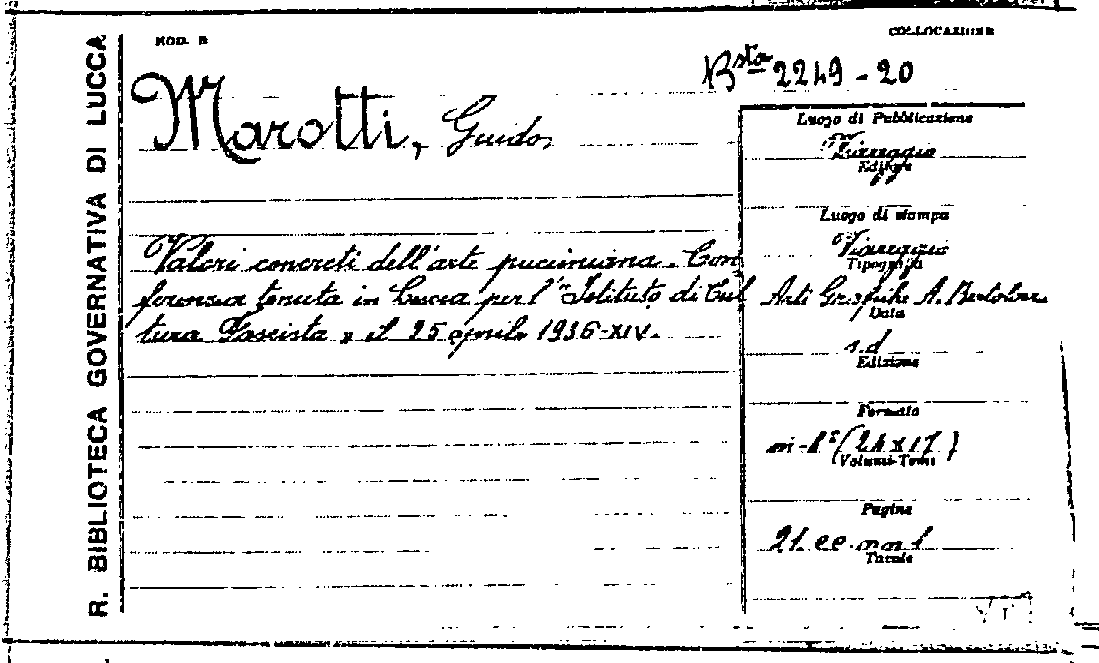 R. BIBLIOTECA GOVERNATIVA DI LUCCA
MOD. B
COLLOCAZIONE
Bsta 2249-20
Marotti, Guido
Valori concreti dell'arte pucciniana. Con
ferenza tenuta in Lucca per l'"Istituto di Cul
tura Fascista" il 25 aprile 1936-XIV.
Luogo di Pubblicazione
Viareggio
Editore
Luogo di stampa
Viareggio
Tipografia
Arti Grafiche A.
Data
s.d
Edizione
Formato
in-8° (24x17)
Volumi-Tomi
Pagine
21. ee. nn 1
Tavole